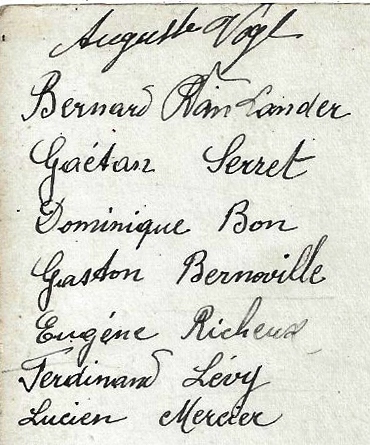 Auguste Vogt
Bernard Van Lander
Gaétan Serret
Dominique Bon
Gaston Bernoville
Eugéne Richeux
Ferdinand Lévy
Lucien Mercier